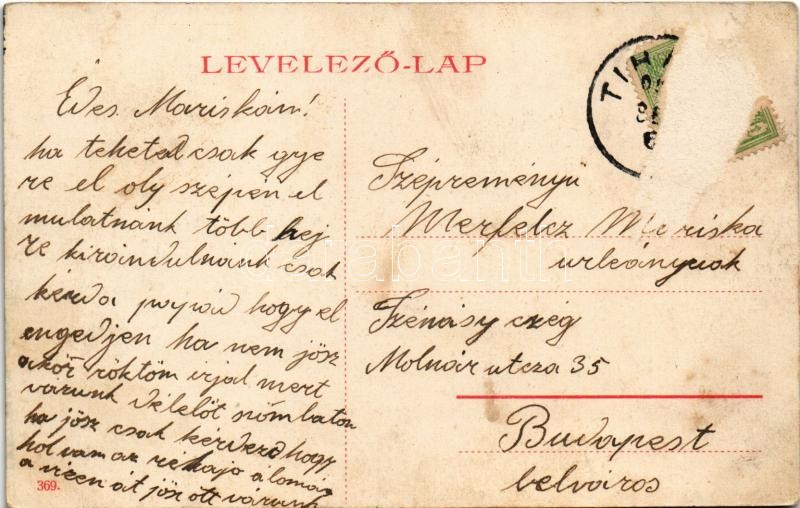 LEVELEZŐ-LAP
TIHA
Edes Mariskám!
ha teheted csak gye
re el oly szépen el
mulatnánk több hej
re kirándulnánk csak
kérd a papád hogy el
engedjen ha nem jösz
akör röktöm irjal mert
várunk délelöt szómbaton
ha jösz csak kerdezd hogy
hol van az állomás
a vizen át jösz ott várunk
369.
Szépreményü
Merfelcz Mariska
urleánynak
Szénásy czég
Molnár utcza 35
Budapest
belváros
darabanth